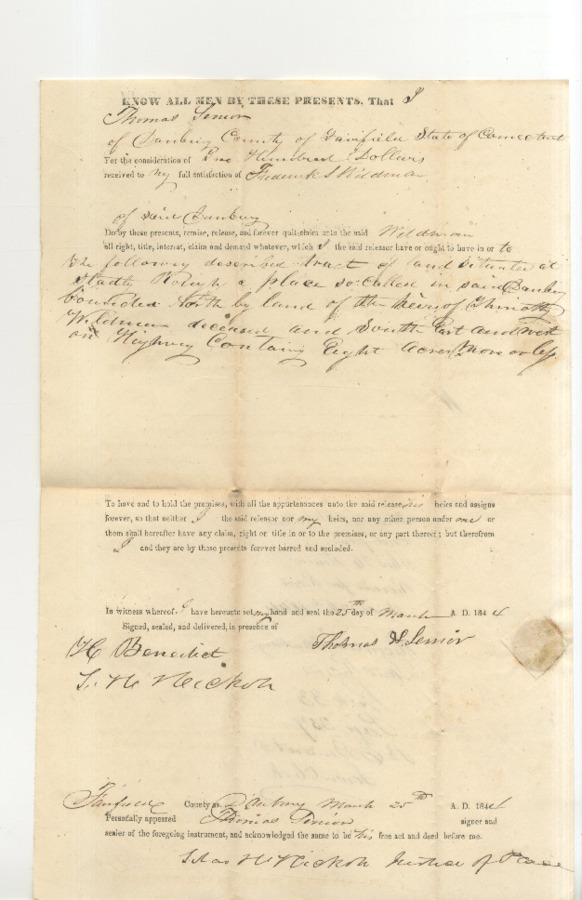 KNOW ALL MEN BY THESE PRESENTS, That I
Thomas Senior
of Danbury County of Fairfield State of Connecticut
For the consideration of One Hundred Dollars
received to my full satisfaction of Frederick S Wildman
of said Danbury
Do by these presents, remise, release, and forever quit-claim unto the said Wildman
all right, title, interest, claim and demand whatever, which I the said releasor have or ought to have in or to
the following described tract of land situated at
Rough a place so called in said Danbury
bounded North by land of the heirs of Timothy
Wildman deceased and South East and West
on Highway Containing Eight Acres More or less
To have and to hold the premises, with all the appurtenances unto the said releasee his heirs and assigns
forever, so that neither I the said releasor nor my heirs, nor any other person under me or
them shall hereafter have any claim, right or title in or to the premises, or any part thereof; but therefrom
I and they are by these presents forever barred and secluded.
In witness whereof, I have hereunto set my hand and seal the 25th day of March A. D. 1844
Signed, sealed, and delivered, in presence of
Thomas Senior
Benedict
Fairfield County ss. Danbury March 25th A. D. 1844
Personally appeared Thomas Senior signer and
sealer of the foregoing instrument, and acknowledged the same to be his free act and deed before me.
Justice of Peace